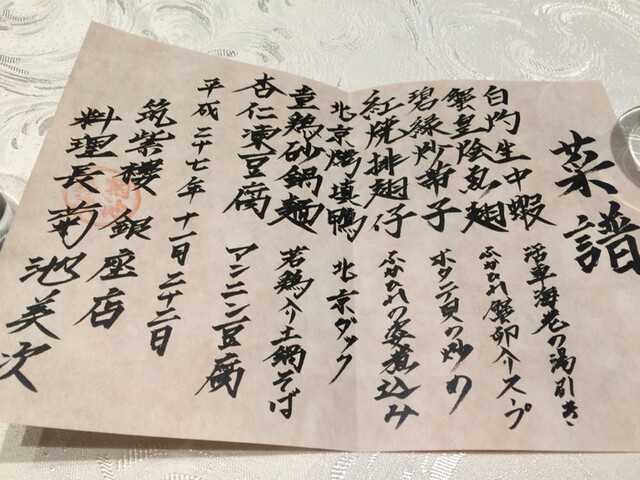 菜譜
白灼生中蝦 活車海老の湯引き
蟹皇燴魚翅 ふかひれ蟹卵入りスープ
碧緑炒帯子 ホタテ貝の炒め
紅焼排翅仔 ふかひれの姿煮込み
北京焼填鴨 北京ダック
童鶏砂鍋麺 若鶏入り土鍋そば
杏仁凍豆腐 マンニン豆腐
平成二十七年十一月二十二日
筑紫樓 銀座店
料理長 菊池美次